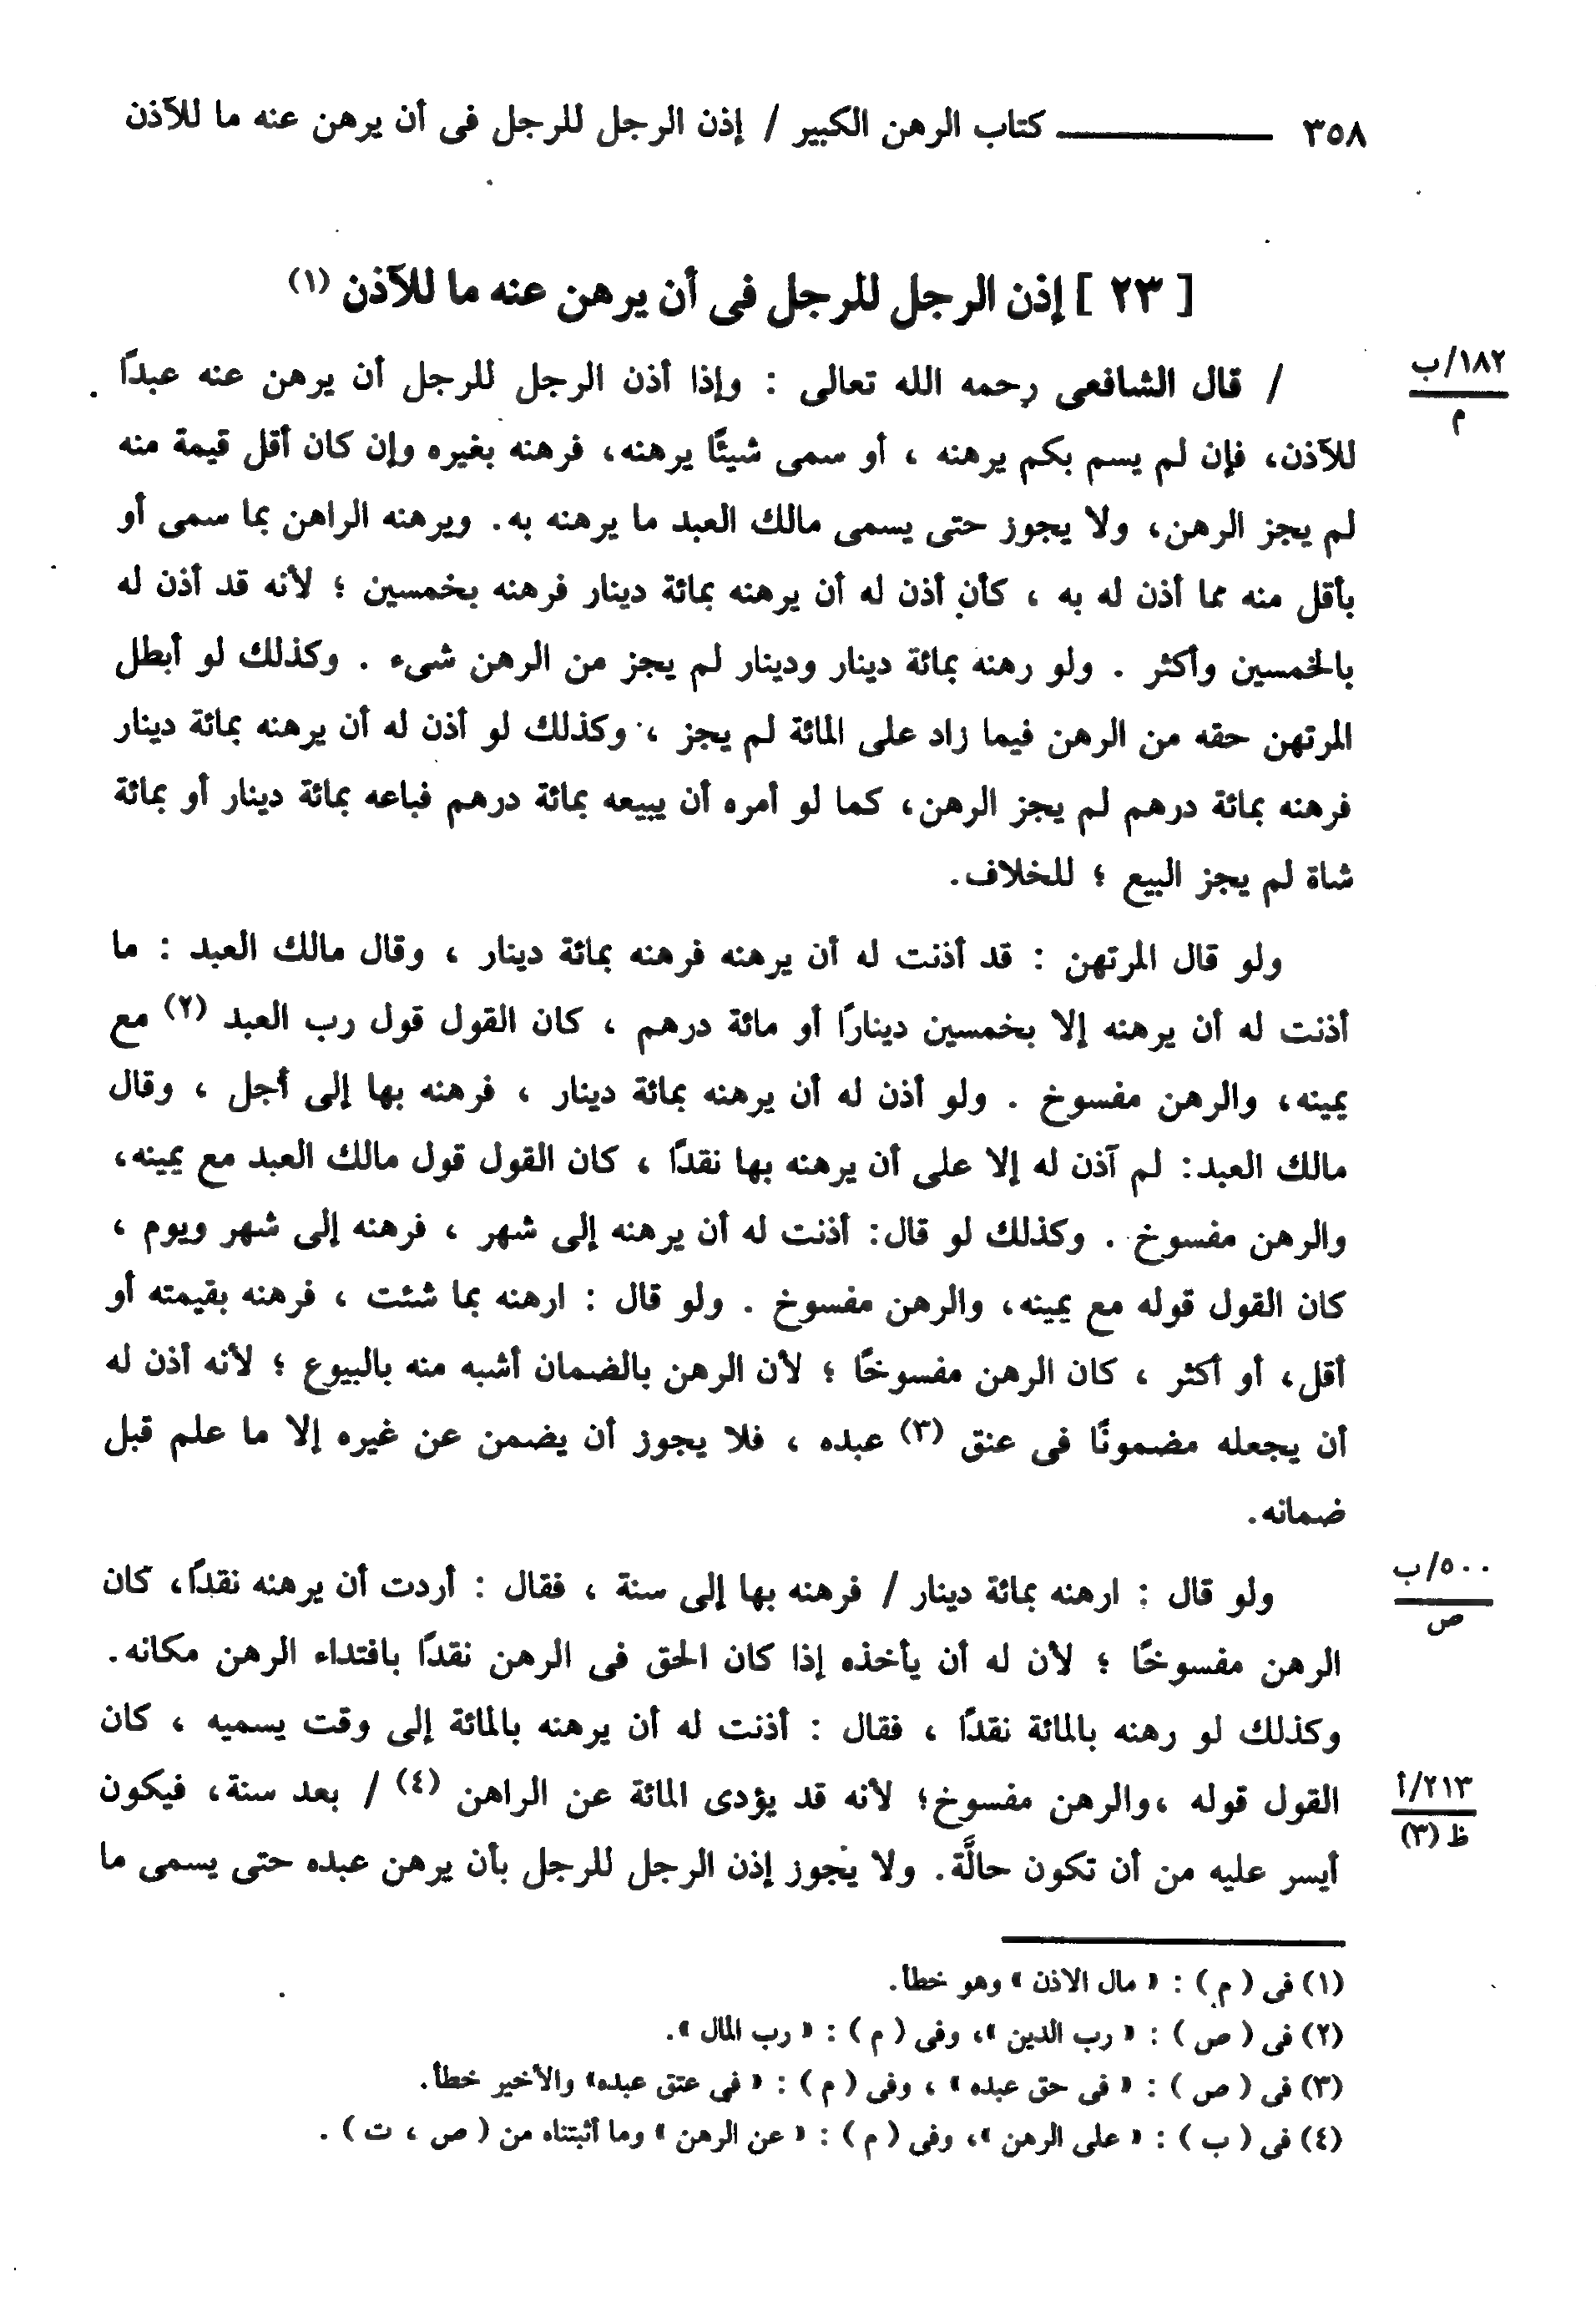 ٣٥٨ ــــــ كتاب الرهن الكبير / إذن الرجل للرجل فى أن يرهن عنه ما للآذن
[ ٢٣ ] إذن الرجل للرجل فى أن يرهن عنه ما للآذن (١)
١٨٢/ب
م
/ قال الشافعى رحمه الله تعالى : وإذا أذن الرجل للرجل أن يرهن عنه عبدًا
للآذن، فإن لم يسم بكم يرهنه ، أو سمى شيئًا يرهنه، فرهنه بغيره وإن كان أقل قيمة منه
لم يجز الرهن، ولا يجوز حتى يسمى مالك العبد ما يرهنه به. ويرهنه الراهن بما سمى أو
بأقل منه مما أذن له به ، كأن أذن له أن يرهنه بمائة دينار فرهنه بخمسين ؛ لأنه قد أذن له
بالخمسين وأكثر . ولو رهنه بمائة دينار ودينار لم يجز من الرهن شىء . وكذلك لو أبطل
المرتهن حقه من الرهن فيما زاد على المائة لم يجز ، وكذلك لو أذن له أن يرهنه بمائة دينار
فرهنه بمائة درهم لم يجز الرهن، كما لو أمره أن يبيعه بمائة درهم فباعه بمائة دينار أو بمائة
شاة لم يجز البيع ؛ للخلاف.
ولو قال المرتهن : قد أذنت له أن يرهنه فرهنه بمائة دينار ، وقال مالك العبد : ما
أذنت له أن يرهنه إلا بخمسين دينارًا أو مائة درهم ، كان القول قول رب العبد (٢) مع
يمينه، والرهن مفسوخ . ولو أذن له أن يرهنه بمائة دينار ، فرهنه بها إلى أجل ، وقال
مالك العبد: لم آذن له إلا على أن يرهنه بها نقدًا ، كان القول قول مالك العبد مع يمينه،
والرهن مفسوخ . وكذلك لو قال: أذنت له أن يرهنه إلى شهر ، فرهنه إلى شهر ويوم ،
كان القول قوله مع يمينه، والرهن مفسوخ . ولو قال : ارهنه بما شئت ، فرهنه بقيمته أو
أقل، أو أكثر ، كان الرهن مفسوخًا ؛ لأن الرهن بالضمان أشبه منه بالبيوع ؛ لأنه أذن له
أن يجعله مضمونًا فى عنق (٣) عبده ، فلا يجوز أن يضمن عن غيره إلا ما علم قبل
ضمانه.
٥٠٠/ب
ص
ولو قال : ارهنه بمائة دينار / فرهنه بها إلى سنة ، فقال : أردت أن يرهنه نقدًا، كان
الرهن مفسوخًا ؛ لأن له أن يأخذه إذا كان الحق فى الرهن نقدًا بافتداء الرهن مكانه.
وكذلك لو رهنه بالمائة نقدًا ، فقال : أذنت له أن يرهنه بالمائة إلى وقت يسميه ، كان
٢١٣/أ
ظ (٣)
القول قوله ،والرهن مفسوخ؛ لأنه قد يؤدى المائة عن الراهن (٤) / بعد سنة، فيكون
أيسر عليه من أن تكون حالَّة. ولا يجوز إذن الرجل للرجل بأن يرهن عبده حتى يسمى ما
(١) فى ( م ) : « مال الاذن » وهو خطأ.
(٢) فى ( ص ) : « رب الدين »، وفى ( م ) : « رب المال ».
(٣) فى ( ص ) : « فى حق عبده » ، وفى ( م ) : « فى عتق عبده» والأخير خطأ.
(٤) فى ( ب ) : « على الرهن »، وفى ( م ) : « عن الرهن » وما أثبتناه من ( ص ، ت ) .